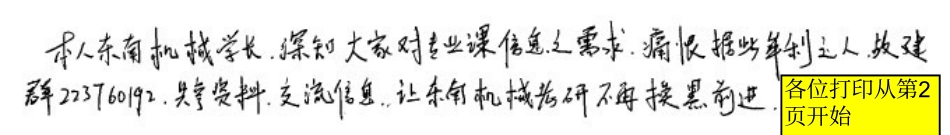 本人东南机械学长.深知大家对专业课信息之需求.痛恨据此牟利之人.故建
群223760192.共享资料.交流信息..让东南机械考研不再摸黑前进.
各位打印从第2
页开始